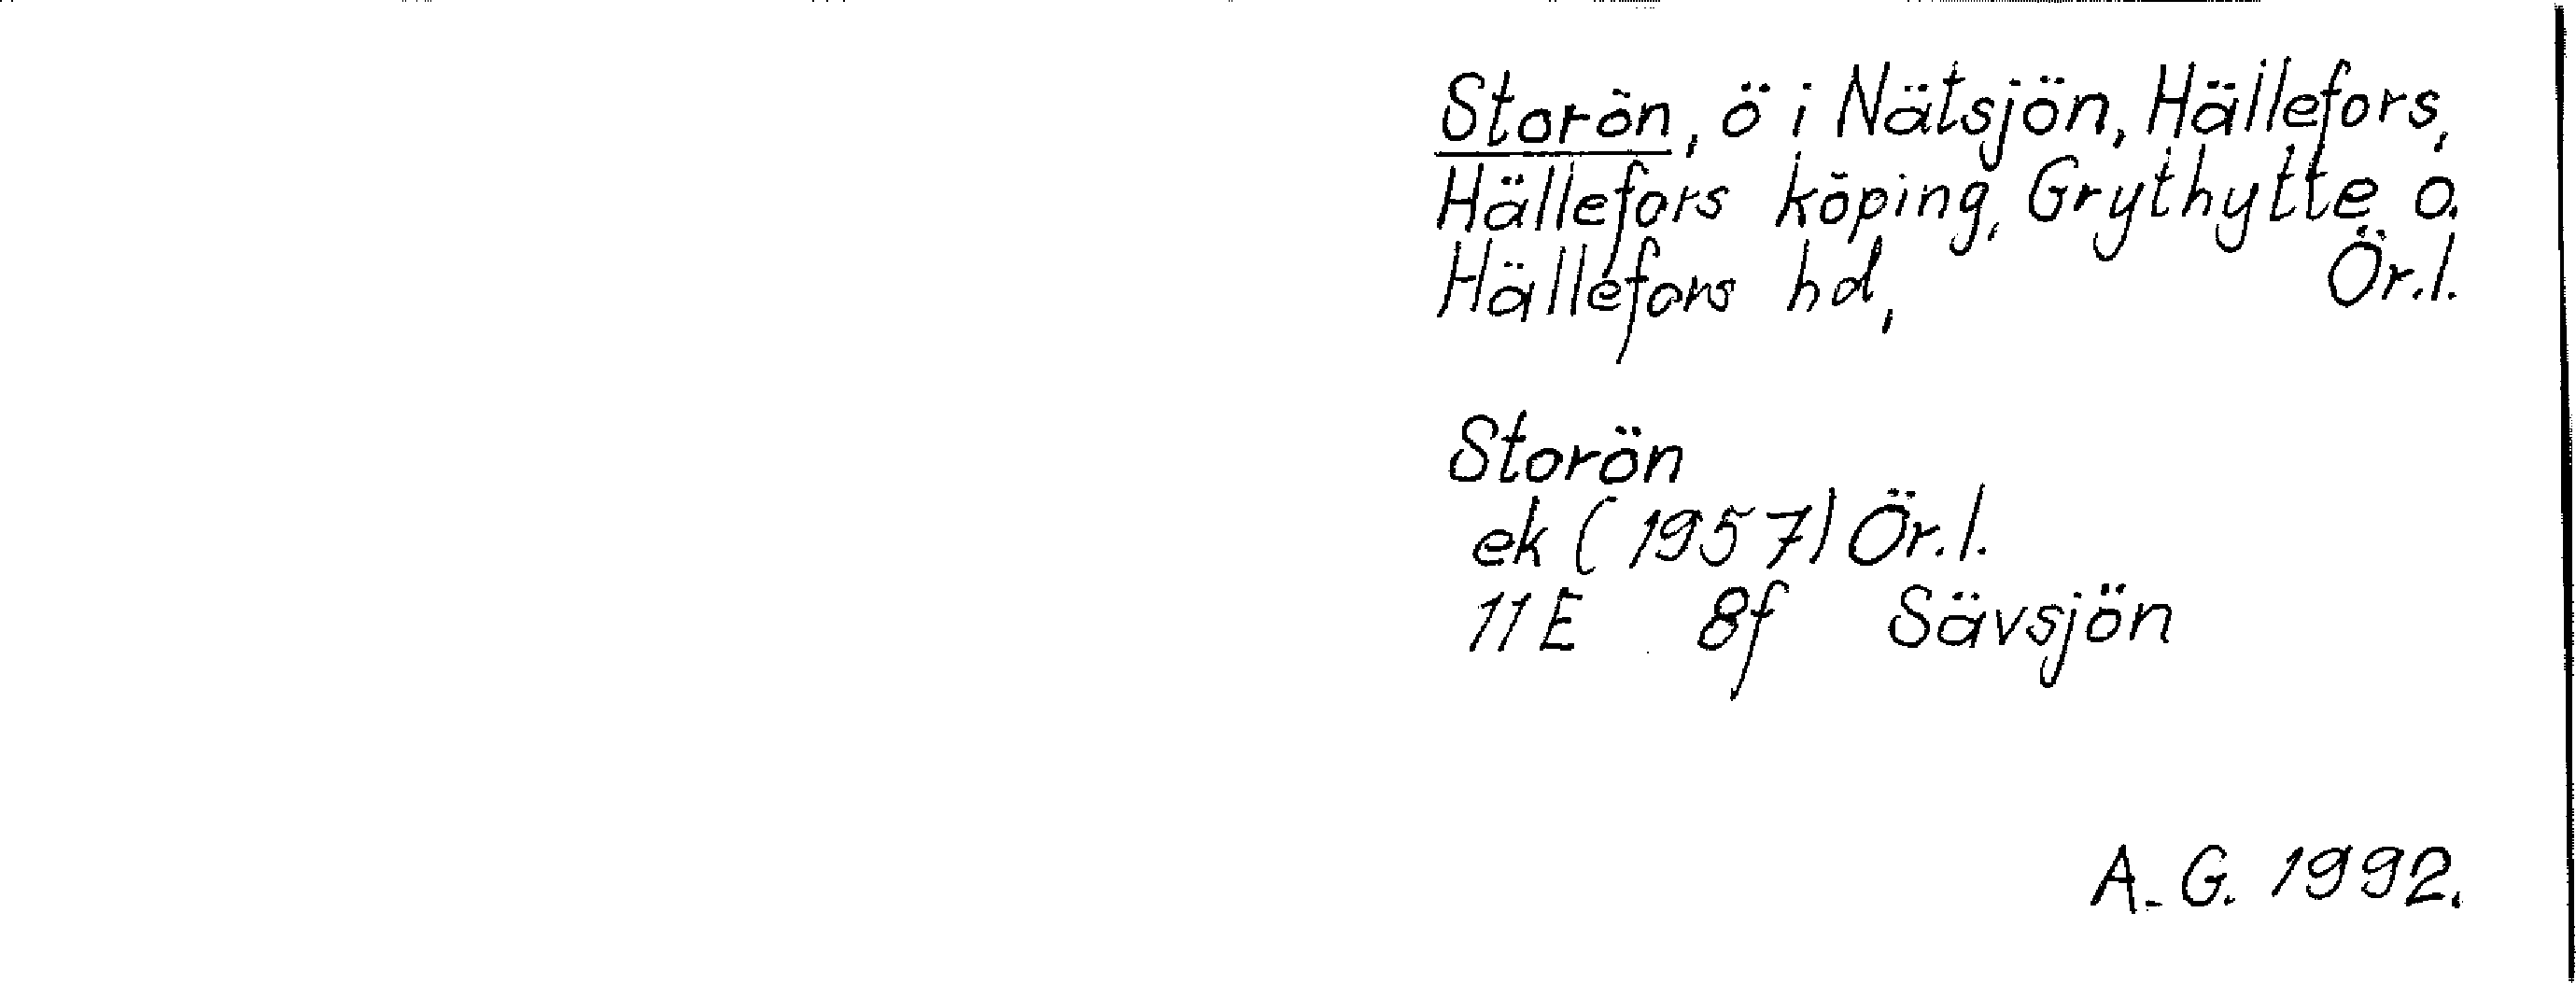 Storön, ö i Nätsjön, Hällefors,
Hällefors köping, Grythytte o.
Hällefors hd, Ör.l.
Storön
ek (1957) Ör.l.
11E 8f Sävsjön
A.G. 1992.